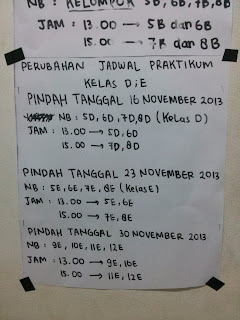 NB : KELOMPOK 5B, 6B, 7B, 8B
JAM : 13.00 → 5B dan 6B
15.00 → 7B dan 8B
PERUBAHAN JADWAL PRAKTIKUM
KELAS D;E
PINDAH TANGGAL 16 NOVEMBER 2013
NB : 5D, 6D, 7D, 8D (Kelas D)
JAM : 13.00 → 5D, 6D
15.00 → 7D, 8D
PINDAH TANGGAL 23 NOVEMBER 2013
NB : 5E, 6E, 7E, 8E (Kelas E)
JAM : 13.00 → 5E, 6E
15.00 → 7E, 8E
PINDAH TANGGAL 30 NOVEMBER 2013
NB : 9E, 10E, 11E, 12E
JAM : 13.00 → 9E, 10E
15.00 → 11E, 12E